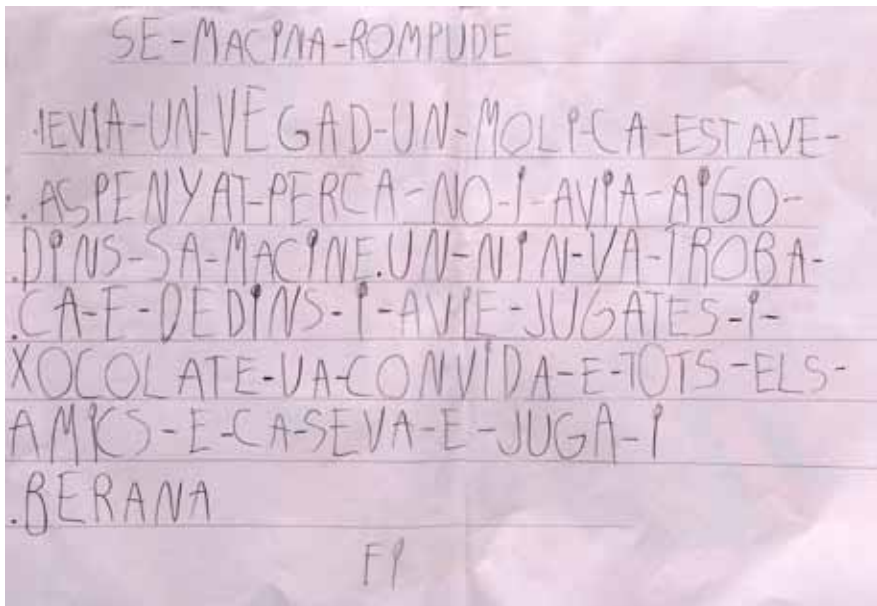 SE-MACINA-ROMPUDE
IEVIA-UN-VEGAD-UN-MOLI-CA-ESTAVE-
.ASPENYAT-PERCA-NO-I-AVIA-AIGO-
.DINS-SA-MACINE.UN-NIN-VA-TROBA-
.CA-E-DEDINS-I-AVIE-JUGATES-I-
XOCOLATE-VA-CONVIDA-E-TOTS-ELS-
AMICS-E-CA-SEVA-E-JUGA-I
.BERANA
FI